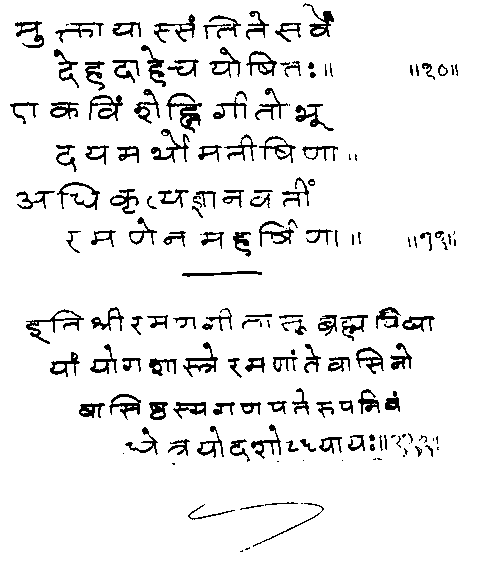 मुक्तायास्संति ते सर्वे
देहदाहे च योषितः॥ ॥१०॥
एकविंशेह्नि गीतोभू
दयमर्थो मनीषिणा॥
अधिकृत्य ज्ञानवतीं
रमणेन महर्षिणा॥ ॥११॥
इति श्रीरमणगीतासु ब्रह्मविद्या
यां योगशास्त्रे रमणांतेवासिनो
वासिष्ठस्य गणपतेरुपनिबं
धे त्रयोदशोऽध्यायः॥१३॥